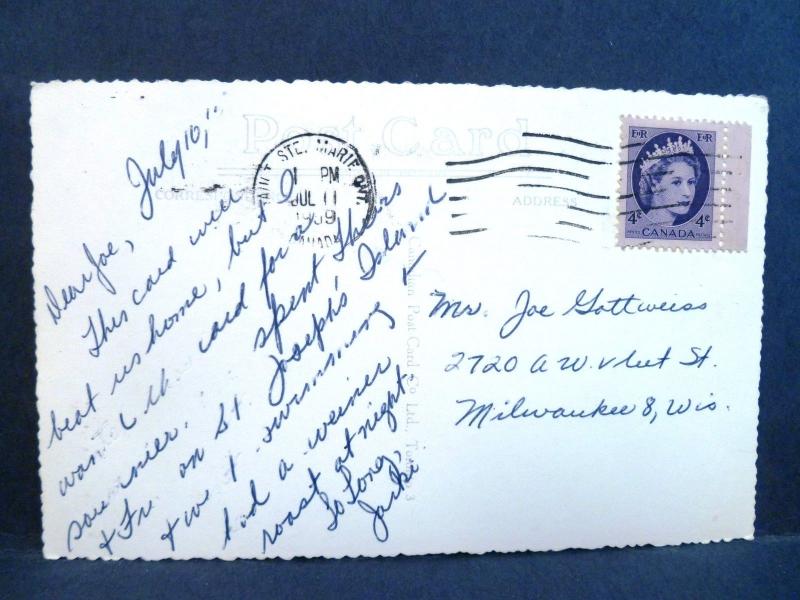 Post Card
CORRES
ADDRESS
SAULT STE. MARIE ONT.
PM
JUL 11
1959
CANADA
E II R E II R
4¢ 4¢
CANADA
July 10,
Dear Joe,
This card will
beat us home, but I
want the card for a
souvenier. spent Thurs
& Fri on St. Joseph's Island
& we swimming &
had a weiner
roast at night.
So Long,
Jacki
Mr. Joe Gottweiss
2720 A W. Vliet St.
Milwaukee 8, Wis.
Canadian Post Card Co. Ltd., Toronto 3